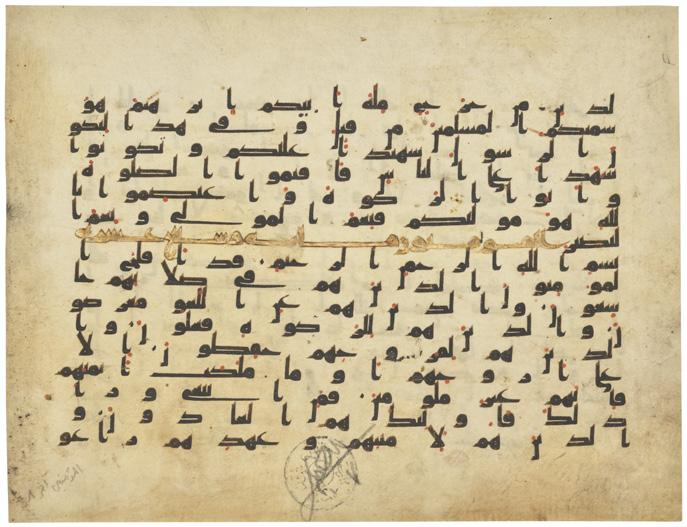 لدين من حرج ملة ابيكم ابرهيم هو
سميكم المسلمين من قبل و في هذا ليكو
ن الرسول شهيدا عليكم و تكونوا
شهدا على الناس فاقيموا الصلوة
و اتوا الزكوة و اعتصموا با
لله هو موليكم فنعم المولى و نعم ا
لنصير
بسم الله الرحمن الرحيم قد افلح ا
لمومنون الذين هم في صلاتهم خا
شعون و الذين هم عن اللغو معرضو
ن و الذين هم للزكوة فعلون و ا
لذين هم لفروجهم حفظون الا
على ازوجهم او ما ملكت ايمنهم
فانهم غير ملومين فمن ابتغى ورا
ذلك فاولئك هم العادون و
الذين هم لامنتهم و عهدهم راعو